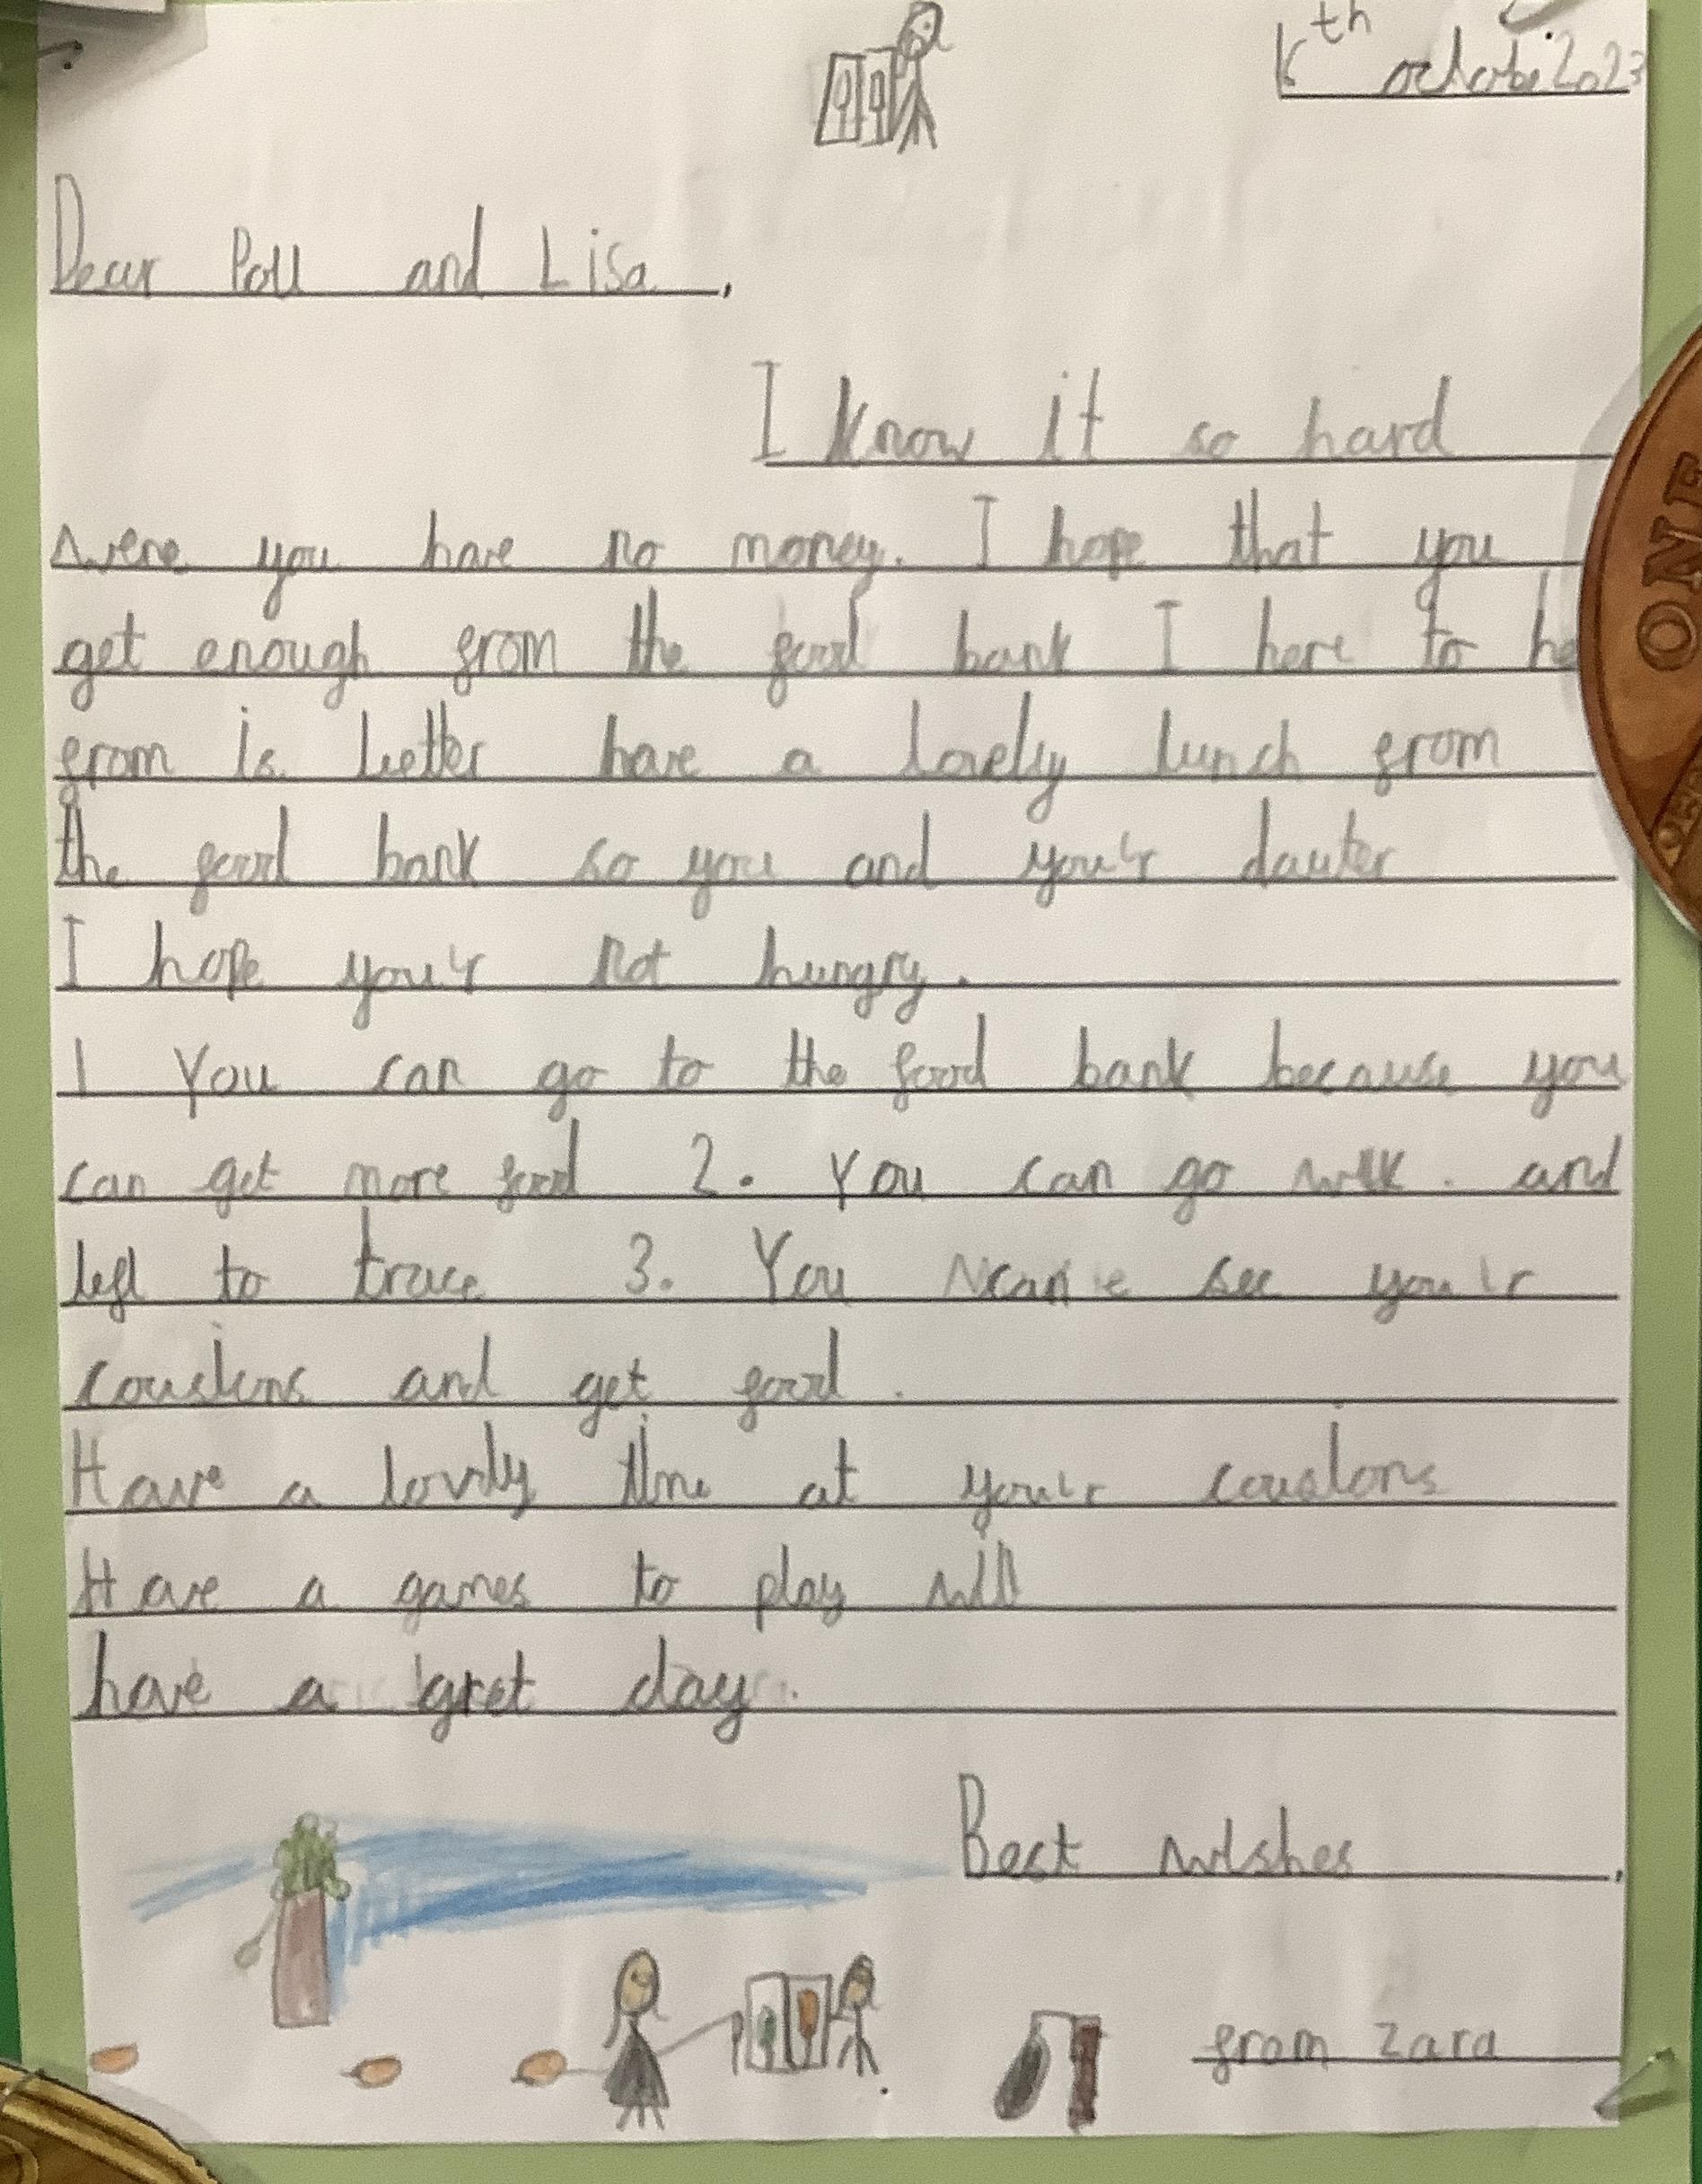 th october 2023
Dear Poll and Lisa,
I know it so hard
were you have no money. I hope that you
get enough from the food bank I here to he
from is better have a lovely lunch from
the food bank so you and you'r dauter
I hope you'r not hungry.
1 You can go to the food bank because you
can get more food 2. You can go and
left to trace 3. You can see you'r
cousins and get food.
Have a lovly time at you'r cousions
Have a games to play will
have a gret day.
Best wishes,
from Zara
ONE